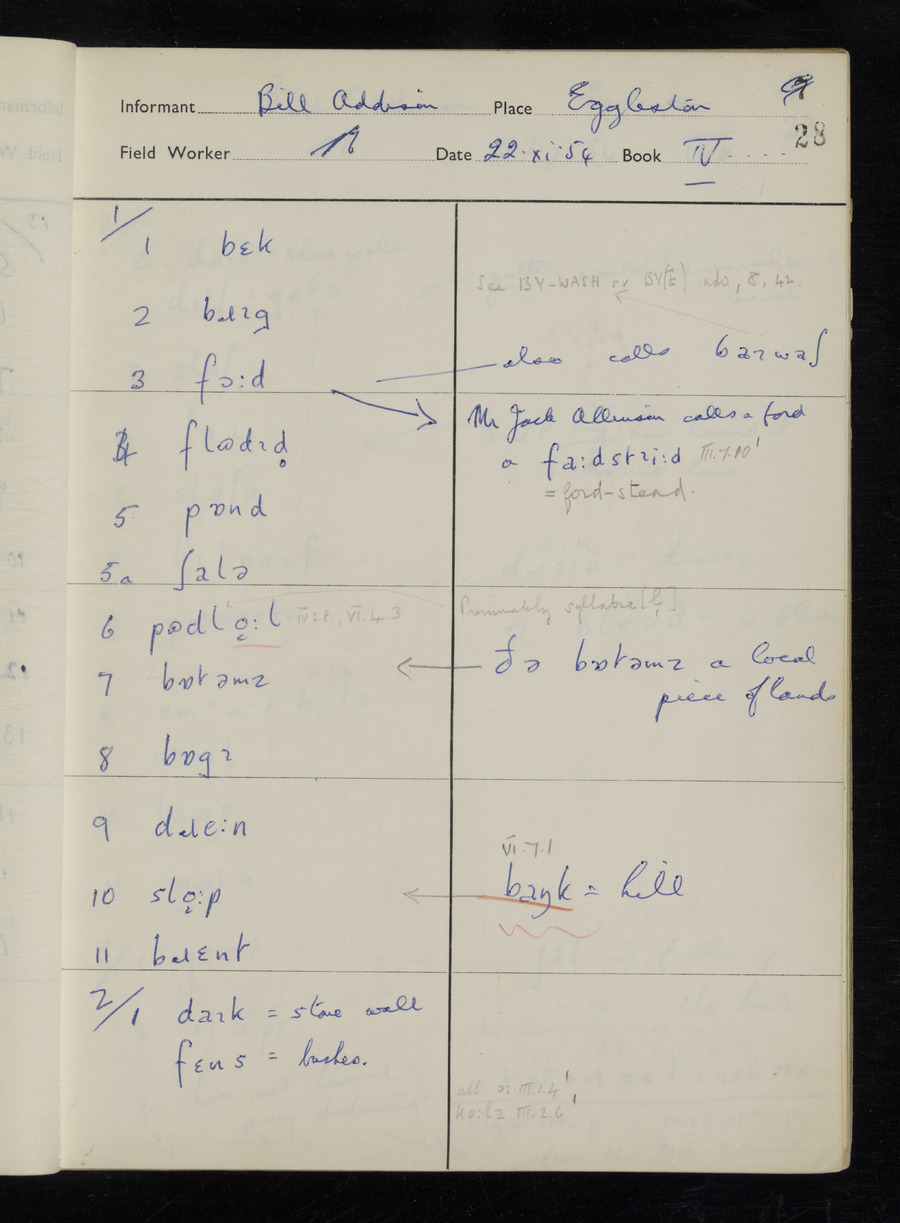 Informant Bill Addison Place Eggleston 9
28
Field Worker Date 22·xi·54 Book IV
1/
1 bɛk
See BY-WASH sv BY(E) adv, 8, 42.
2 bɹɪg
also calls baɪwaʃ
3 fɔ:d
Mr Jack Allinson calls a ford
a fa:dstɪi:d III.7.10'
= ford-stead.
4 flɷdɪd̥
5 pɒnd
5a ʃalə
6 pɷdlo̜:l IV.1.8, VI.4.3
Presumably syllabic [l̩]
7 bɒtəmz
ðə bɒtəmz a local
piece of lands
8 bɒgz
9 dɹe:n
VI.7.1
baŋk = hill
10 slo̜:p
11 bɹɛnt
2/1 daɪk = stone wall
fɛns = bushes.
all III.1.4',
III.2.6'